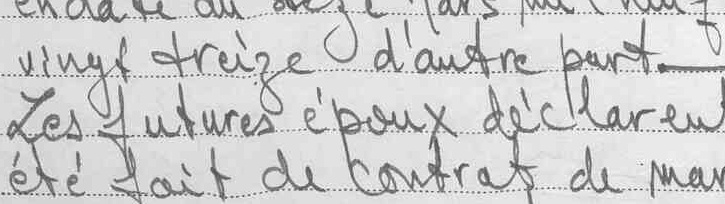 vingt treize d'autre part.
Les futures époux déclarent
été fait de contrat de mar